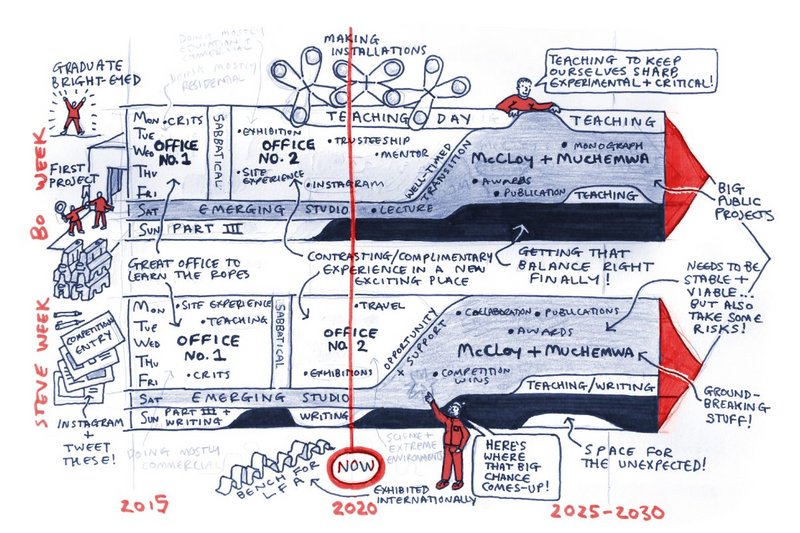 DOING MOSTLY
EDUCATION +
COMMERCIAL
DOING MOSTLY
RESIDENTIAL
MAKING
INSTALLATIONS
GRADUATE
BRIGHT-EYED
TEACHING TO KEEP
OURSELVES SHARP
EXPERIMENTAL + CRITICAL!
BO WEEK
MON
TUE
WED
THU
FRI
SAT
SUN
• CRITS
OFFICE
NO. 1
SABBATICAL
• EXHIBITION
OFFICE
NO. 2
• SITE
EXPERIENCE
TEACHING DAY
• TRUSTEESHIP
• MENTOR
• INSTAGRAM
• LECTURE
WELL-TIMED
TRANSITION
TEACHING
• MONOGRAPH
McCLOY + MUCHEMWA
• AWARDS
• PUBLICATION
TEACHING
EMERGING STUDIO
PART III
FIRST
PROJECT
BIG
PUBLIC
PROJECTS
GREAT OFFICE TO
LEARN THE ROPES
CONTRASTING/COMPLIMENTARY
EXPERIENCE IN A NEW
EXCITING PLACE
GETTING THAT
BALANCE RIGHT
FINALLY!
NEEDS TO BE
STABLE +
VIABLE...
BUT ALSO
TAKE SOME
RISKS!
STEVE WEEK
COMPETITION
ENTRY
MON
TUE
WED
THU
FRI
SAT
SUN
• SITE EXPERIENCE
• TEACHING
OFFICE
NO. 1
• CRITS
SABBATICAL
• TRAVEL
OFFICE
NO. 2
• EXHIBITIONS
OPPORTUNITY
× SUPPORT
• COLLABORATION • PUBLICATIONS
• AWARDS
McCLOY + MUCHEMWA
• COMPETITION
WINS
TEACHING/WRITING
EMERGING STUDIO
PART III +
WRITING
WRITING
INSTAGRAM
+
TWEET
THESE!
DOING MOSTLY
COMMERCIAL
BENCH FOR
LFA
NOW
EXHIBITED
INTERNATIONALLY
SCIENCE +
EXTREME
ENVIRONMENTS
HERE'S
WHERE
THAT BIG
CHANCE
COMES-UP!
SPACE FOR
THE UNEXPECTED!
GROUND-
BREAKING
STUFF!
2015
2020
2025-2030